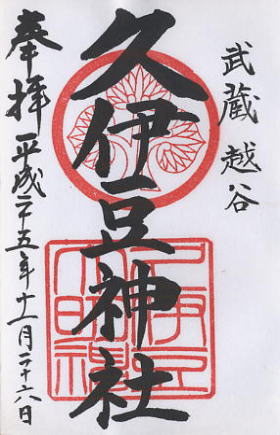 武蔵越谷
久伊豆神社
奉拝 平成二十五年十一月二十六日